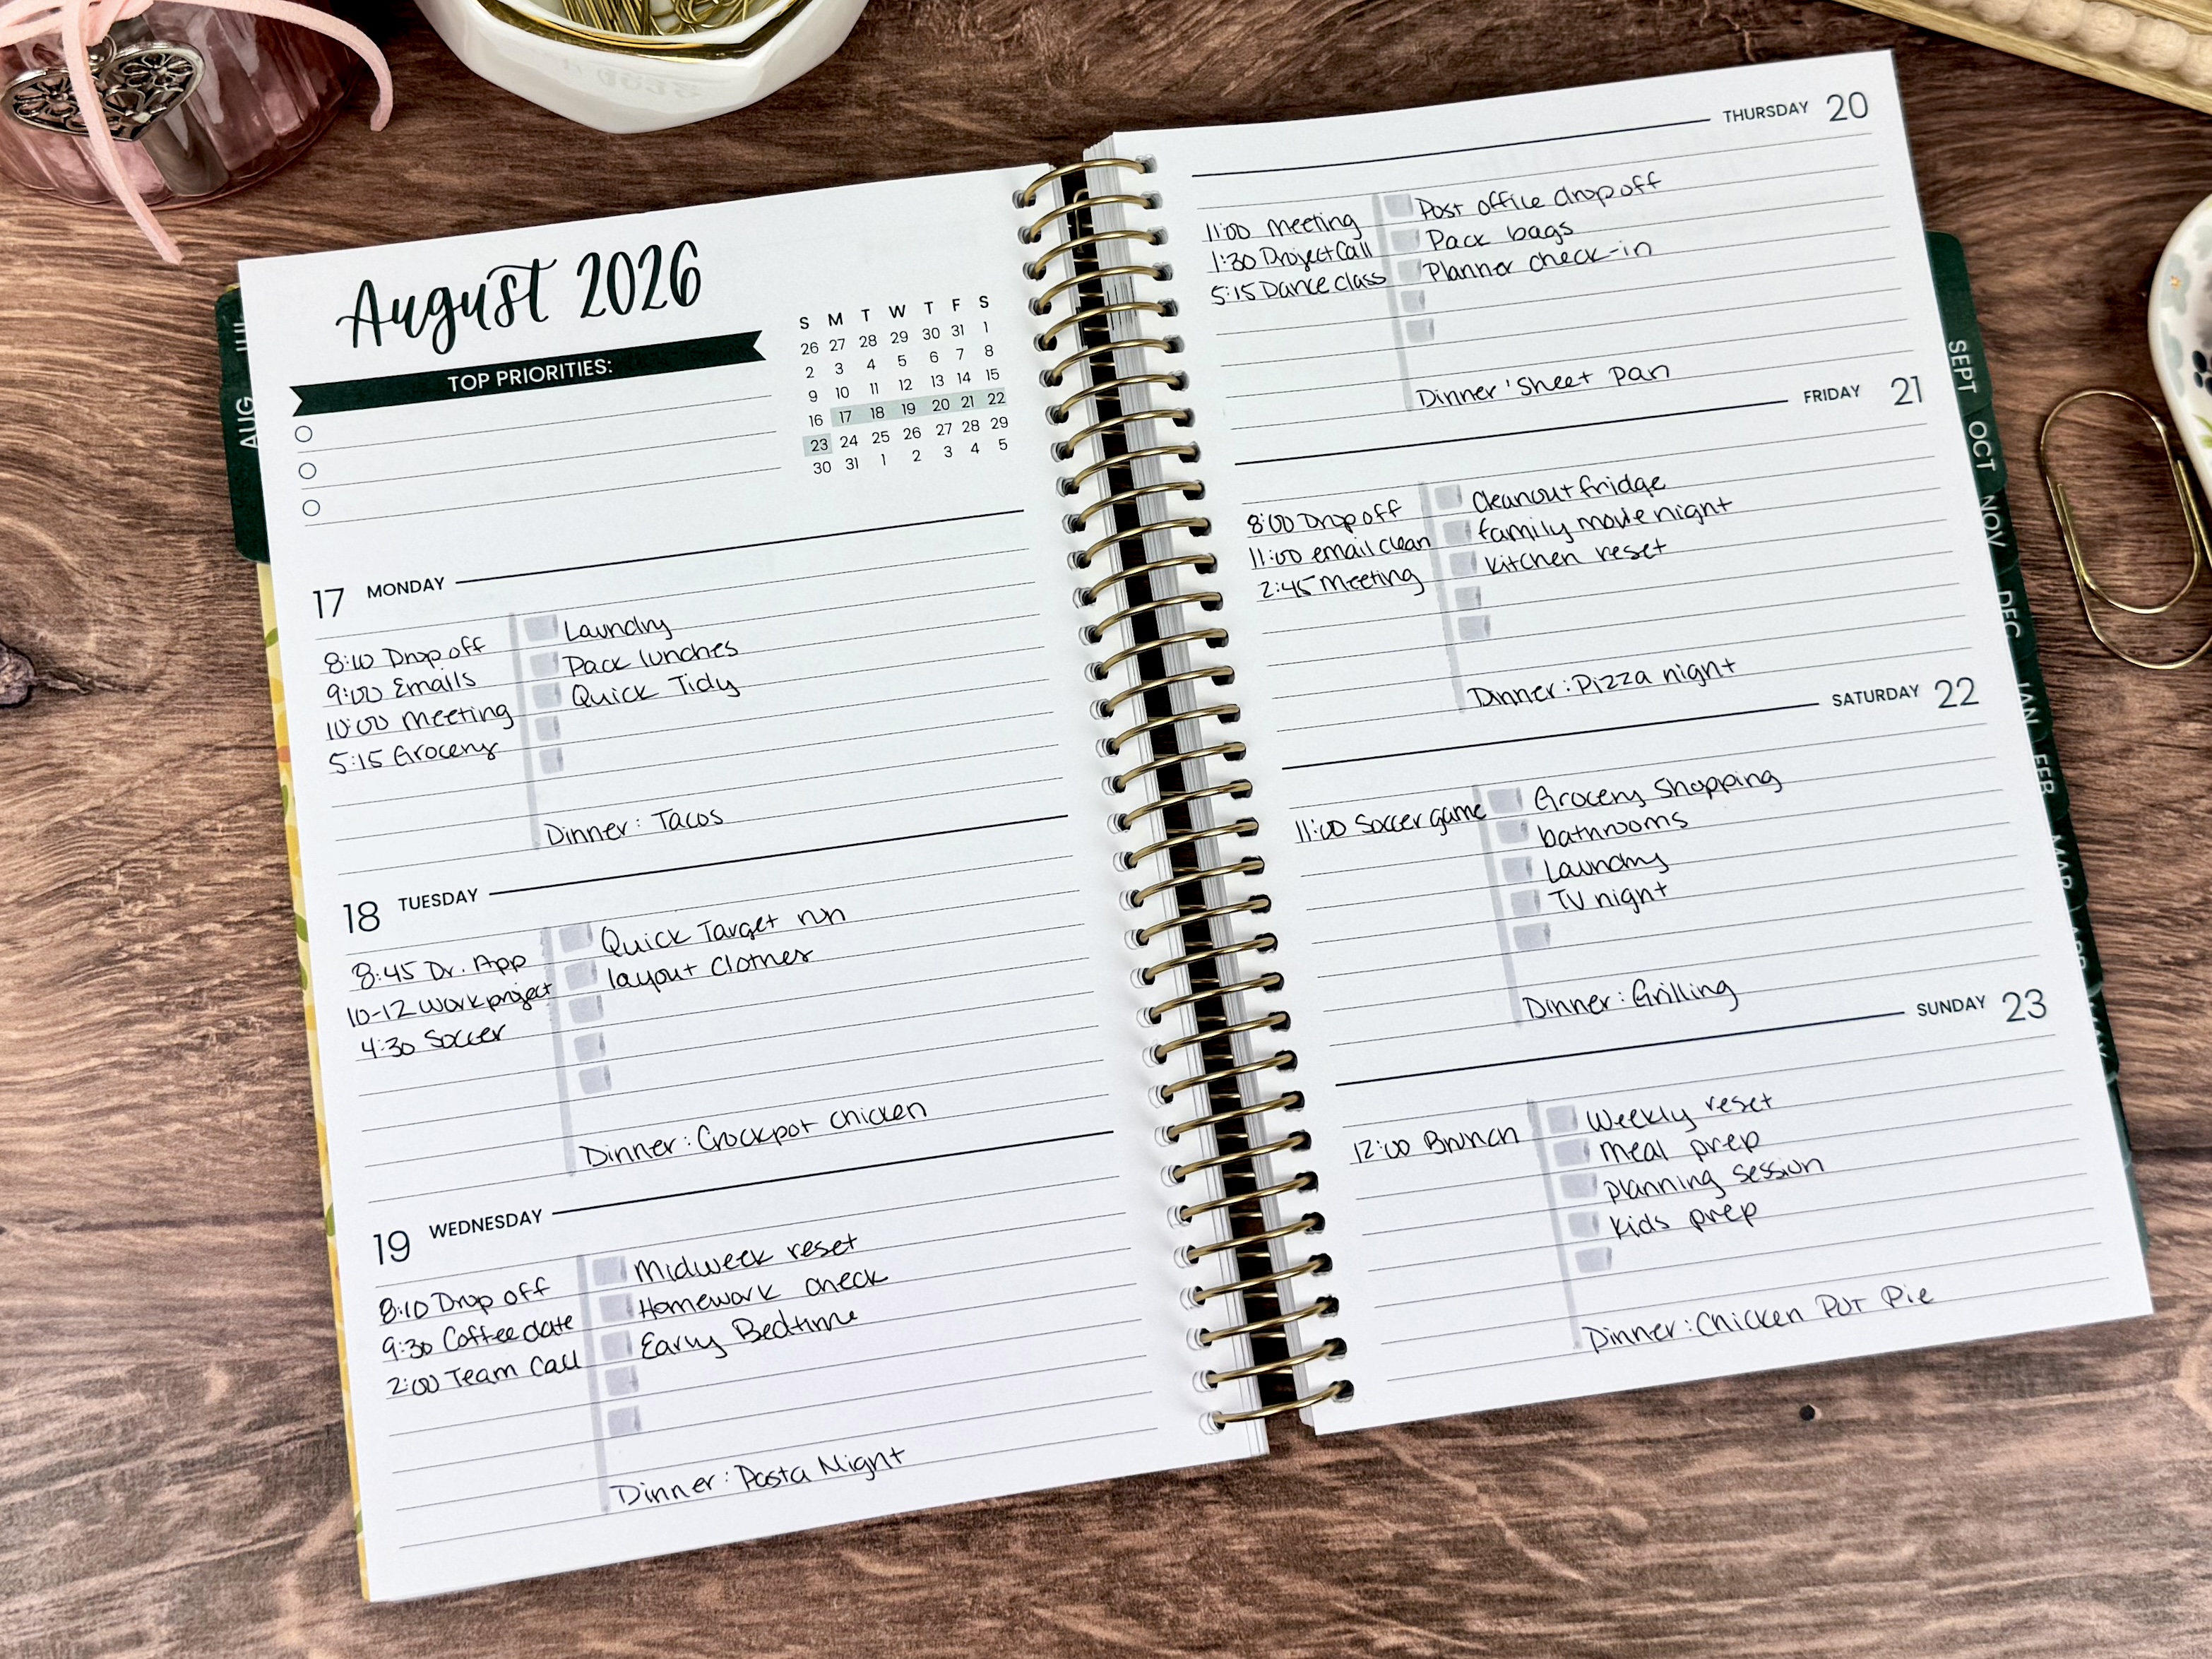 August 2026
TOP PRIORITIES:
S M T W T F S
26 27 28 29 30 31 1
2 3 4 5 6 7 8
9 10 11 12 13 14 15
16 17 18 19 20 21 22
23 24 25 26 27 28 29
30 31 1 2 3 4 5
AUG
17 MONDAY
8:10 Drop off
9:00 Emails
10:00 Meeting
5:15 Grocery
Laundry
Pack lunches
Quick Tidy
Dinner: Tacos
18 TUESDAY
8:45 Dr. App
10-12 Work project
4:30 Soccer
Quick Target run
layout clothes
Dinner: Crockpot chicken
19 WEDNESDAY
8:10 Drop off
9:30 Coffee date
2:00 Team Call
Midweek reset
Homework check
Early Bedtime
Dinner: Pasta Night
THURSDAY 20
11:00 Meeting
1:30 Project Call
5:15 Dance class
Post office drop off
Pack bags
Planner check-in
Dinner: Sheet Pan
FRIDAY 21
8:00 Drop off
11:00 email clean
2:45 Meeting
Cleanout fridge
family movie night
kitchen reset
Dinner: Pizza night
SATURDAY 22
11:00 Soccer game
Grocery Shopping
bathrooms
Laundry
TV night
Dinner: Grilling
SUNDAY 23
12:00 Brunch
Weekly reset
meal prep
planning session
kids prep
Dinner: Chicken Pot Pie
SEPT
OCT
NOV
DEC
JAN
FEB
MAR